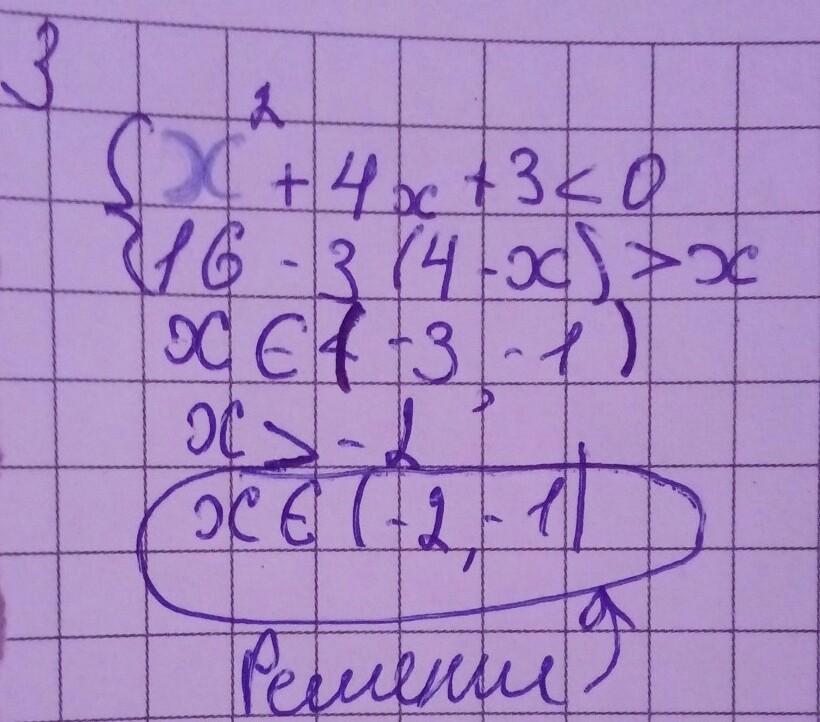 3
{ x² + 4x + 3 < 0
16 - 3 (4 - x) > x
x ∈ (-3, -1)
x > -2
x ∈ (-2, -1)
Решение